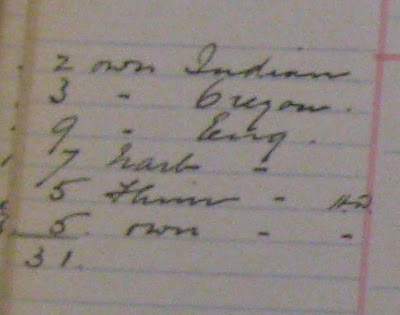 2 own Indian
3 " Oregon.
9 " Eng.
7 Earb "
5 Thin " H.D.
5. own " "
31.